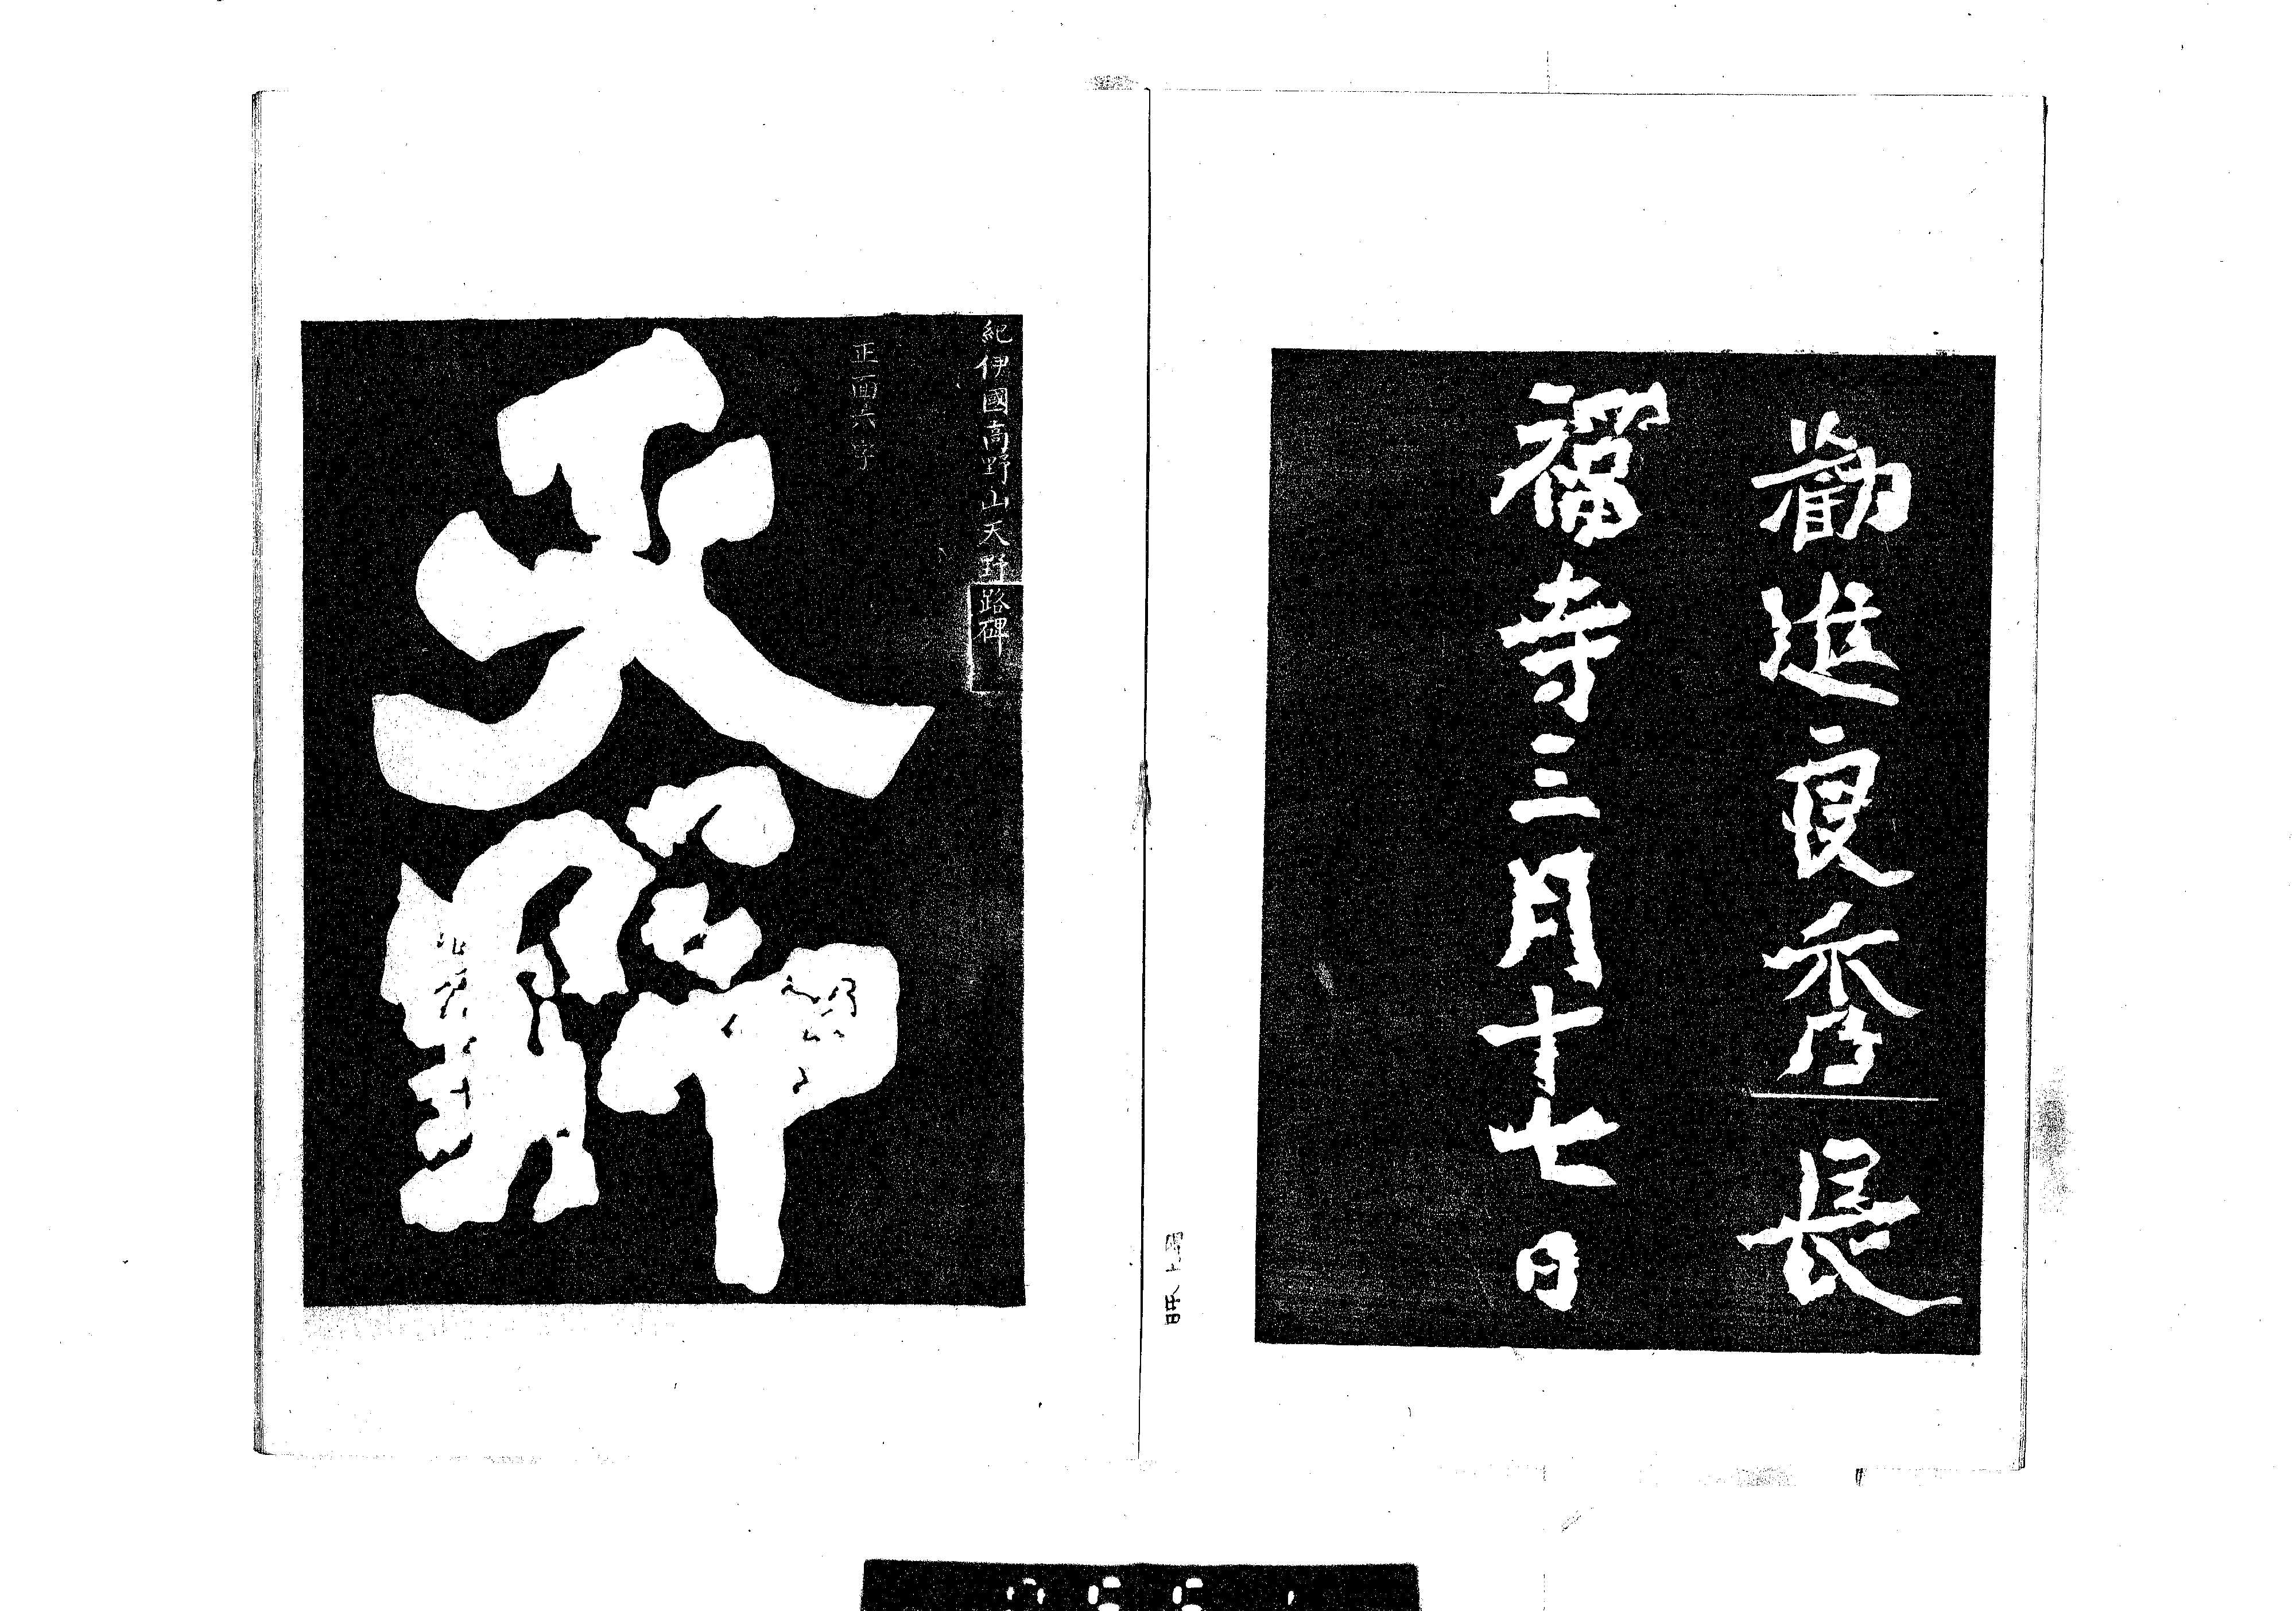 勸進良秀長
福寺三月十七日
紀伊國高野山天野路碑
正面六字
天野